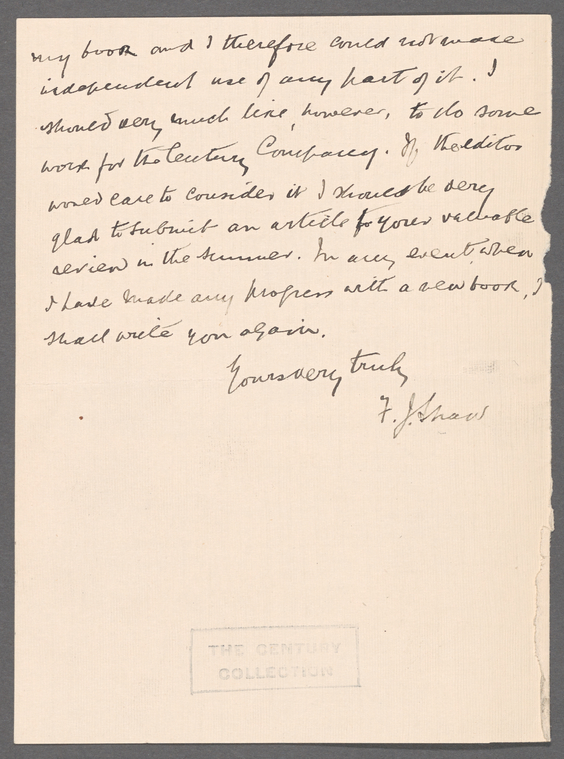 my book and I therefore could not make
independent use of any part of it. I
should very much like, however, to do some
work for the Century Company. If the editor
would care to consider it I should be very
glad to submit an article for your valuable
review in the summer. In any event, when
I have made any progress with a new book, I
shall write you again.
Yours very truly
F. J. Shaw
THE CENTURY
COLLECTION